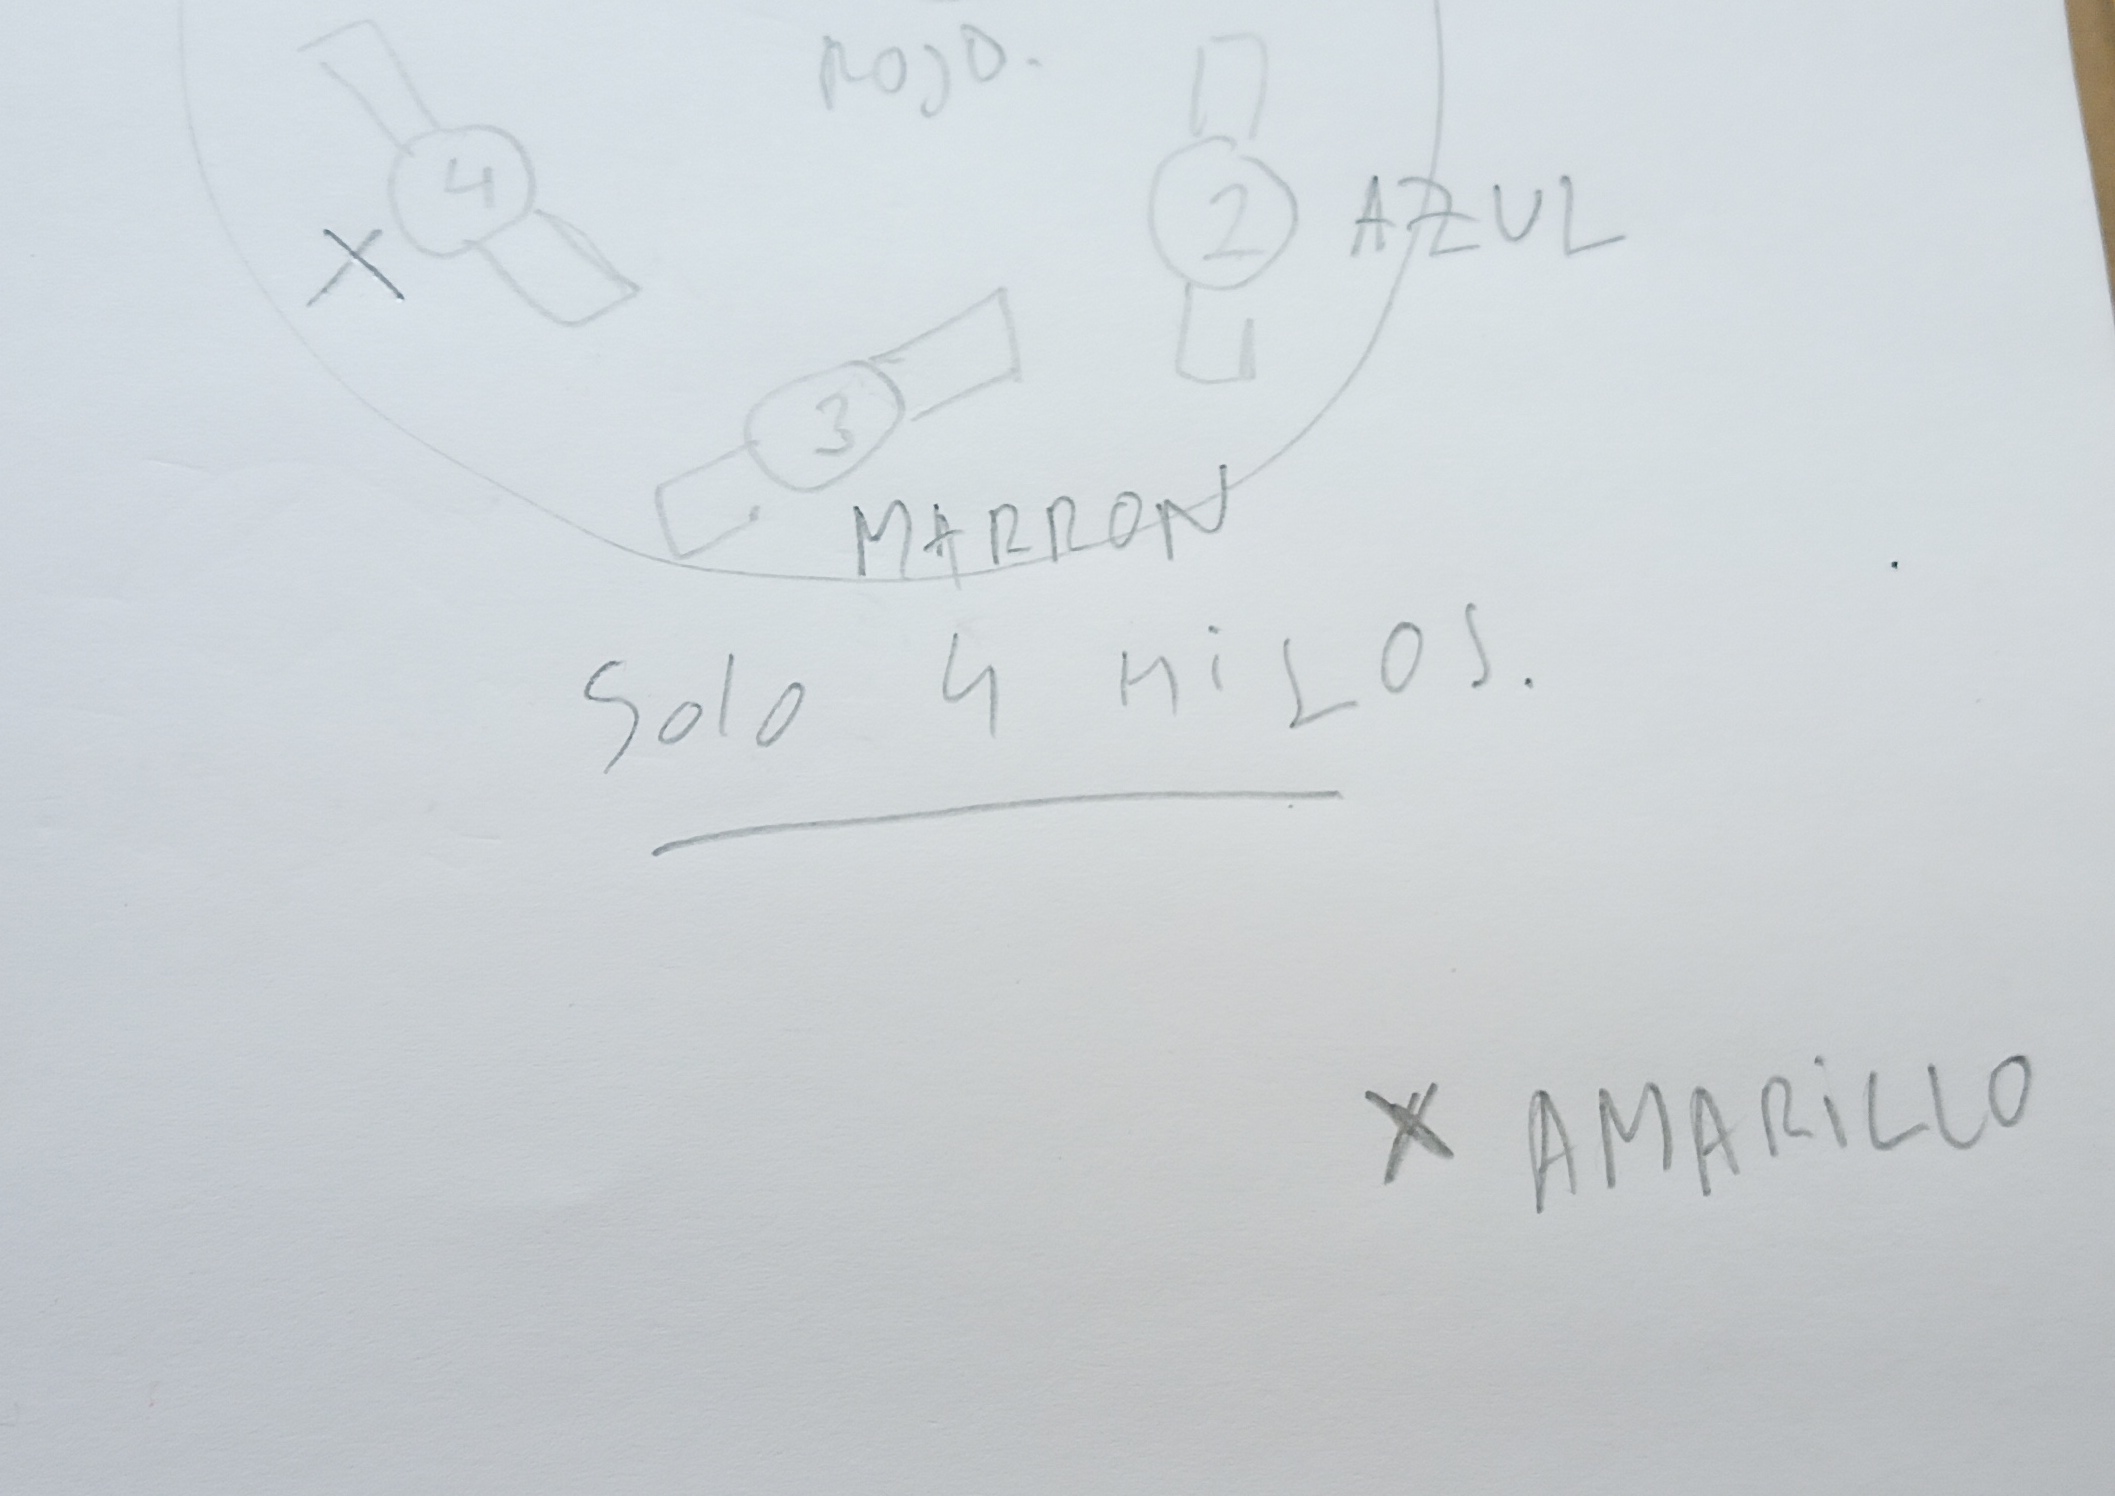 ROJO.
4
2 AZUL
3
MARRON
Solo 4 HiLOS.
X
X AMARiLLO